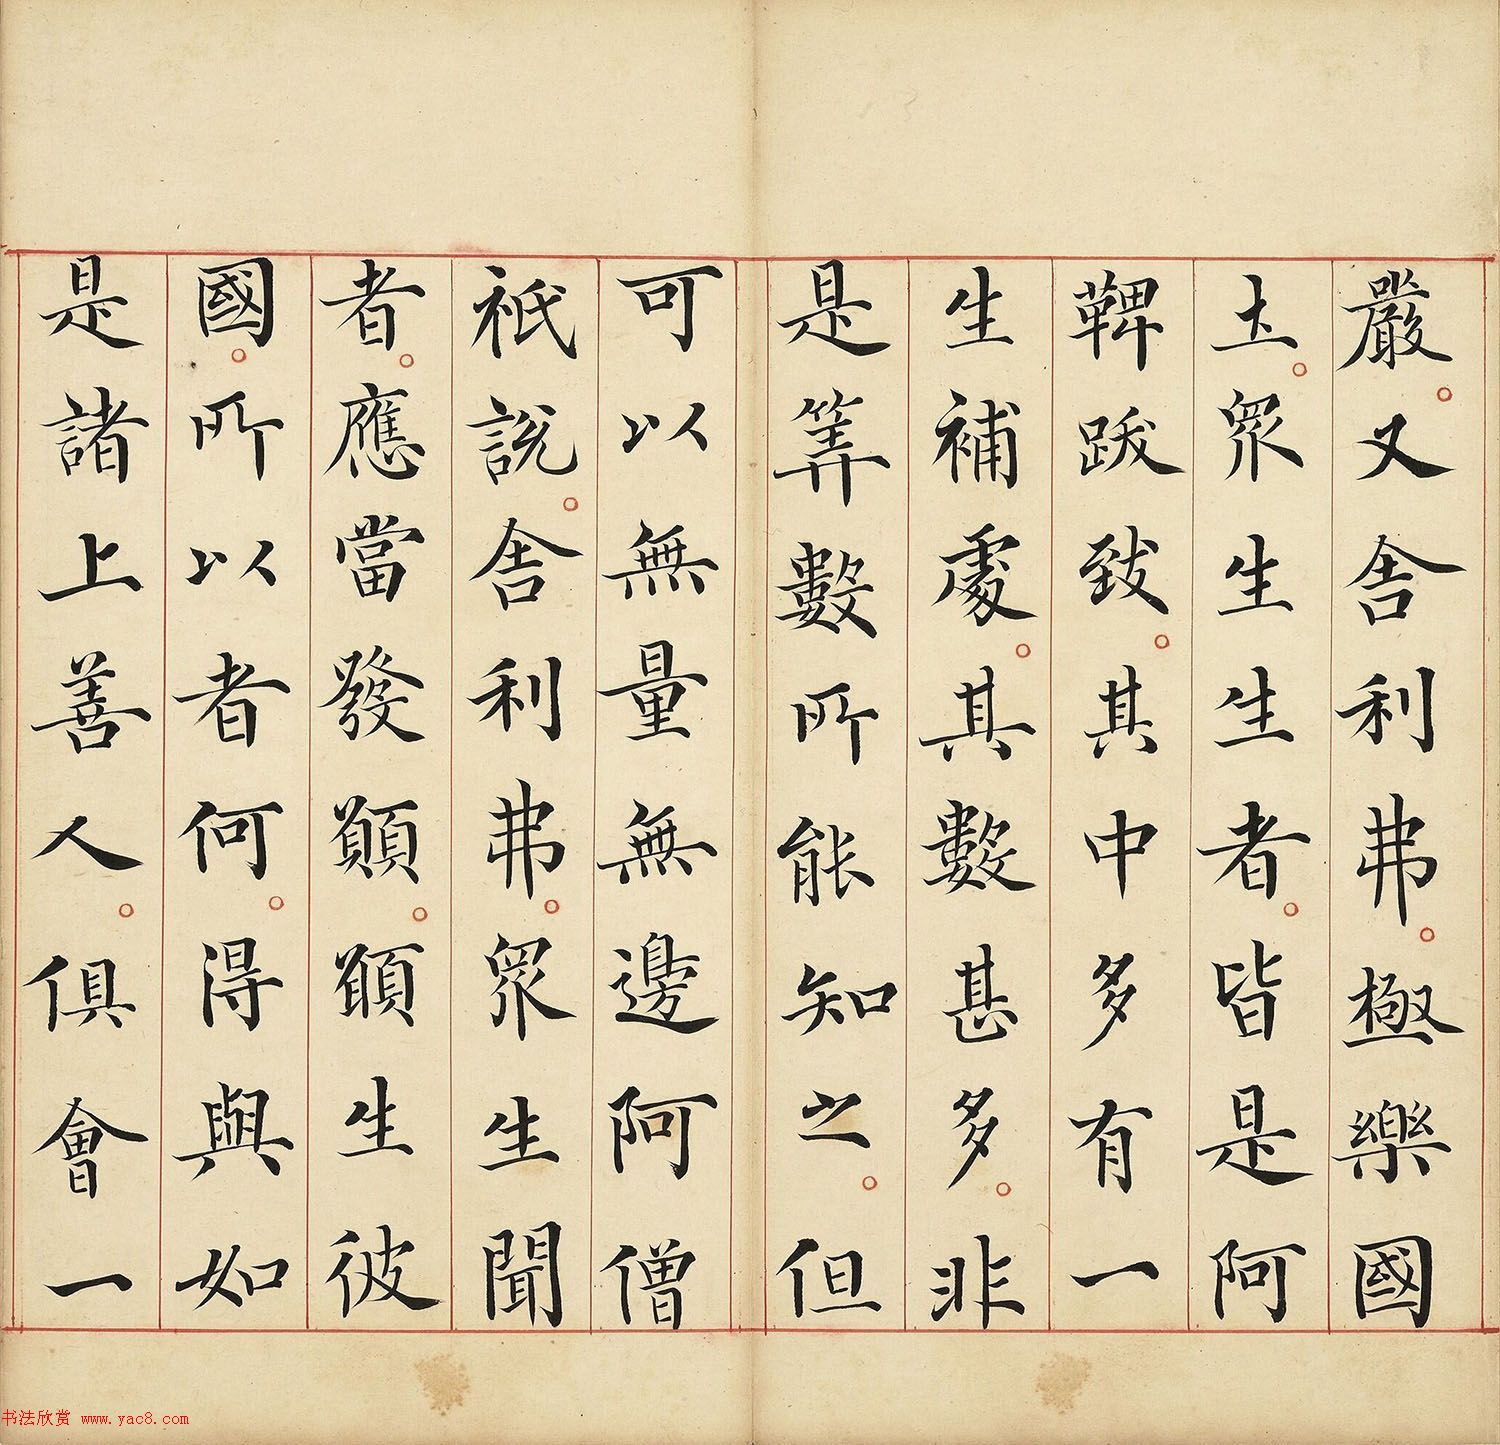 嚴。又舎利弗。極樂國
土。眾生生者。皆是阿
鞞跋致。其中多有一
生補處。其數甚多。非
是筭數所能知之。但
可以無量無邊阿僧
祇說。舎利弗。眾生聞
者。應當發願。願生彼
國。所以者何。得與如
是諸上善人。俱會一
书法欣赏 www.yac8.com